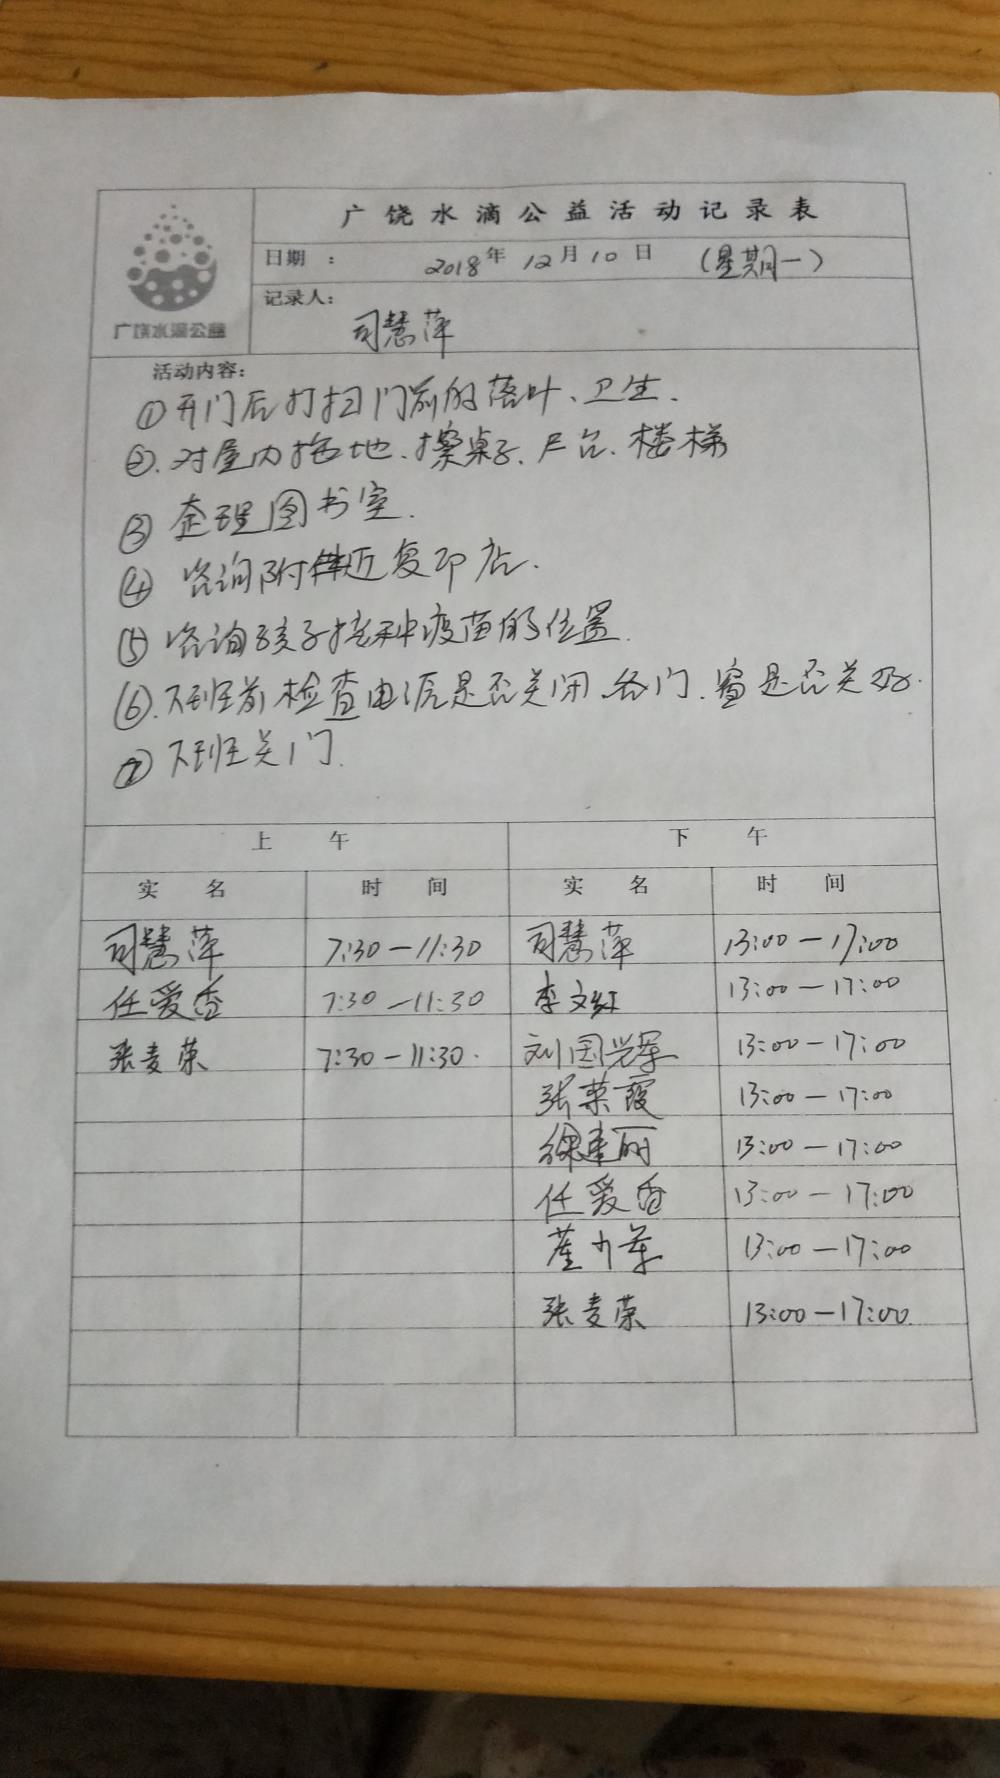 广饶水滴公益活动记录表
日期： 2018年12月10日 （星期一）
广饶水滴公益
记录人：
司慧萍
活动内容：
①开门后打扫门前的落叶、卫生.
②.对屋内拖地、擦桌子、尸台、楼梯
③ 整理图书室.
④ 咨询附近复印店.
⑤ 咨询孩子接种疫苗的位置.
⑥.下班前检查电源是否关闭、各门、窗是否关好.
⑦ 下班关门.
上午 下午
实名 时间 实名 时间
司慧萍 7:30—11:30 司慧萍 13:00—17:00
任爱香 7:30—11:30 李文红 13:00—17:00
张麦荣 7:30—11:30. 刘国兴军 13:00—17:00
张荣霞 13:00—17:00
徐建丽 13:00—17:00
任爱香 13:00—17:00
13:00—17:00
张麦荣 13:00—17:00.